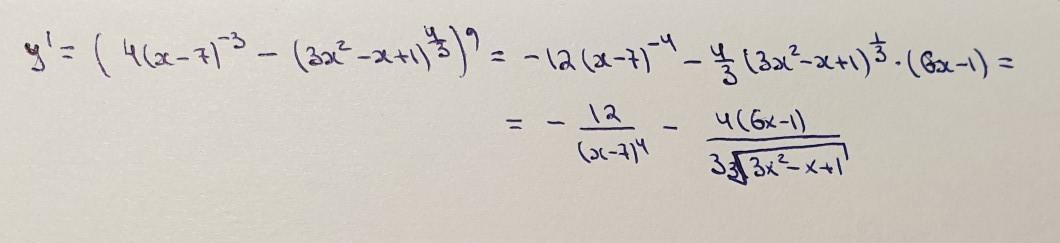 y' = (4(x-7)^{-3} - (3x^2-x+1)^{\frac{4}{3}})' = -12(x-7)^{-4} - \frac{4}{3}(3x^2-x+1)^{\frac{1}{3}} \cdot (6x-1) =
= -\frac{12}{(x-7)^4} - \frac{4(6x-1)}{3\sqrt[3]{3x^2-x+1}}